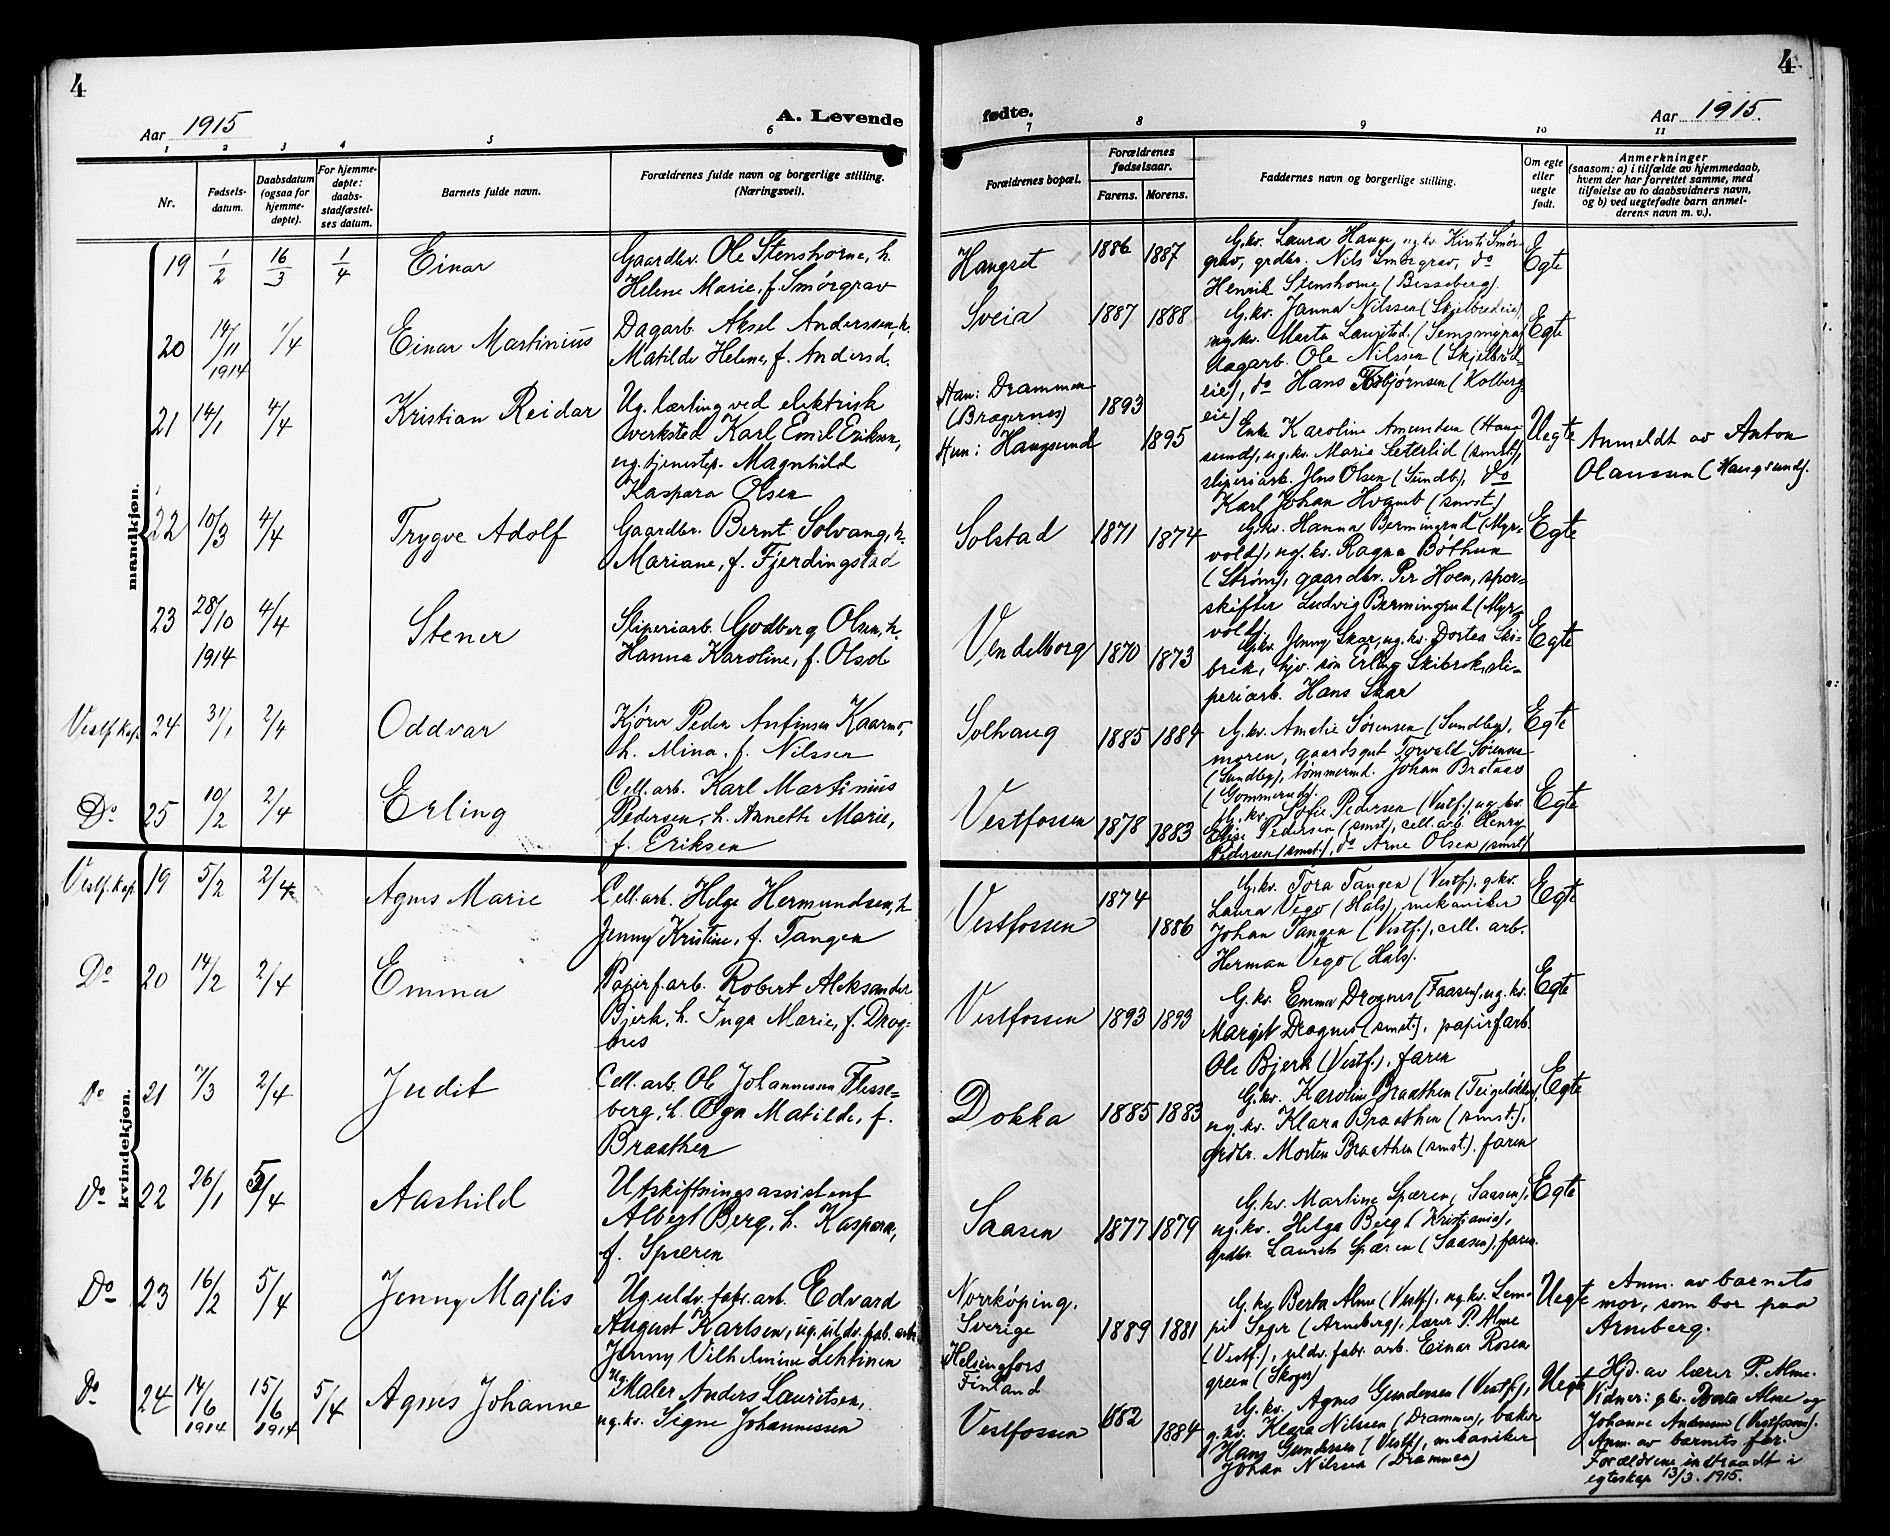 4
Aar 1915
A. Levende
1 2 3 4 5 6
Nr.
Fødsels-
datum.
Daabsdatum
(ogsaa for
hjemme-
døpte).
For hjemme-
døpte:
daabs-
stadfæstel-
ses datum.
Barnets fulde navn.
Forældrenes fulde navn og borgerlige stilling.
(Næringsvei).
mandkjøn.
19 1/2 16/3 1/4 Einar
Gaardbr. Ole Stenshorne, h.
Helene Marie, f. Smørgrav
20 14/11 1914 1/4 Einar Martinius
Dagarb. Aksel Anderssen, h.
Matilde Helene, f. Andersd.
21 14/1 4/4 Kristian Reidar
Ug. lærling ved elektrisk
verksted Karl Emil Eriksen,
ug. tjenestep. Magnhild
Kaspara Olsen
22 10/3 4/4 Trygve Adolf
Gaardbr. Bernt Solvang, h.
Mariane, f. Fjerdingstad
23 28/10 1914 4/4 Stener
Sliperiarb. Godberg Olsen, h.
Hanna Karoline, f. Olsd.
Vestf. kap. 24 31/1 2/4 Oddvar
Kjører Peder Anfinsen Kaarmo,
h. Mina, f. Nilssen
Do 25 10/2 2/4 Erling
Cell. arb. Karl Martinius
Pedersen, h. Annette Marie,
f. Eriksen
kvindekjøn.
Vestf. kap. 19 5/2 2/4 Agnes Marie
Cell. arb. Helge Hermundsen, h.
Jenny Kristine, f. Tangen
Do 20 14/2 2/4 Emma
Papirf. arb. Robert Aleksander
Bjerk, h. Inga Marie, f. Drog-
nes
Do 21 7/3 2/4 Judit
Cell. arb. Ole Johannessen Flesse-
berg, h. Olga Matilde, f.
Braathen
Do 22 26/1 5/4 Aashild
Utskiftningsassistent
Albert Berg, h. Kaspara,
f. Spæren
Do 23 16/2 5/4 Jenny Majlis
Ug. uldv. fabr. arb. Edvard
August Karlsen, ug. uldv. fab. arb.
Jenny Vilhelmine Lehtinen
Do 24 14/6 1914 15/6 1914 5/4 Agnes Johanne
Ug. Maler Anders Lauritsen,
ug. kv. Signe Johannessen
4
fødte.
Aar 1915.
7 8 9 10 11
Forældrenes bopæl.
Forældrenes
fødselsaar.
Farens. Morens.
Faddernes navn og borgerlige stilling.
Om egte
eller
uegte
født.
Anmerkninger
(saasom: a) i tilfælde av hjemmedaab,
hvem der har forrettet samme, med
tilføielse av to daabsvidners navn,
og b) ved uegtefødte barn anmel-
derens navn m. v.).
Haugset 1886 1887
G. kv. Laura Hauge, ug. kv. Kirsti Smør-
grav, grdbr. Nils Smørgrav, do
Henrik Stenshorne (Bisseberg).
Egte
Sveia 1887 1888
G. kv. Janna Nilssen (Skjelbredeie),
ug. kv. Marta Laurstad (Semsmyra),
dagarb. Ole Nilssen (Skjelbred-
eie), do Hans Torbjørnsen (Kolberg-
eie)
Egte
Han: Drammen
(Bragernes) 1893
Hun: Haugsund 1895
Enke Karoline Amundsen (Haug-
sund), ug. kv. Marie Seterlid (smst.),
sliperiarb. Jens Olsen (Sundb.), do
Karl Johan (smst.)
Uegte
Anmeldt av Anton
Olaussen (Haugsund).
Solstad 1871 1874
G. kv. Hanna Bermingrud (Myr-
vold), ug. kv. Ragna Bøthun
(Strøm), gaardbr. Per Hoen, spor-
skifter Ludvig Bermingrud (Myr-
vold)
Egte
Vendelborg 1870 1873
G. kv. Jenny Skar, ug. kv. Dortea Ski-
brek, hjv. søn Erling Skibrek, sli-
periarb. Hans Skar
Egte
Solhaug 1885 1884
G. kv. Amalie Sørensen (Sundby),
moren, gaardsgut Torvald Sørensen
(Sundby), tømmerm. Johan Brataas
(Gommerud).
Egte
Vestfossen 1878 1883
G. kv. Sofie Pedersen (Vestf.), ug. kv.
Elise Pedersen (smst.), cell. arb. Henry
Pedersen (smst.), do Arne Olsen (smst.)
Egte
Vestfossen 1874 1886
G. kv. Tora Tangen (Vestf.), g. kv.
Laura Vego (Hals), mekaniker
Johan Tangen (Vestf.), cell. arb.
Herman Vego (Hals).
Egte
Vestfossen 1893 1893
G. kv. Emma Drognes (Faasen), ug. kv.
Margit Drognes (smst.), papirfarb.
Ole Bjerk (Vestf.), faren
Egte
Dokka 1885 1883
G. kv. Karoline Braathen (Teigeløkken),
ug. kv. Klara Braathen (smst.),
grdbr. Morten Braathen (smst.), faren
Egte
Saasen 1877 1879
G. kv. Martine Spæren (Saasen),
ug. kv. Helga Berg (Kristiania),
grdbr. Laurits Spæren (Saasen), faren.
Egte
Norrkøping,
Sverige
Helsingfors
Finland
1889 1881
G. kv. Berta Alme (Vestf.), ug. kv. Lem-
pi Seger (Arneberg), lærer P. Alme
(Vestf.), uldv. fabr. arb. Einar Rosen
green (Skoger)
Uegte
Anm. av barnets
mor, som bor paa
Arneberg.
Vestfossen 1882 1884
G. kv. Agnes Gundersen (Vestf.),
g. kv. Klara Nilssen (Drammen), baker
Hans Gundersen (Vestf.), mekaniker
Johan Nilssen (Drammen)
Uegte
Hjd. av lærer P. Alme.
Vidner: g. kv. Berta Alme og
Johanne Andersen (Vestfossen).
Anm. av barnets far.
Forældrene indtraadt i
egteskap 13/3. 1915.